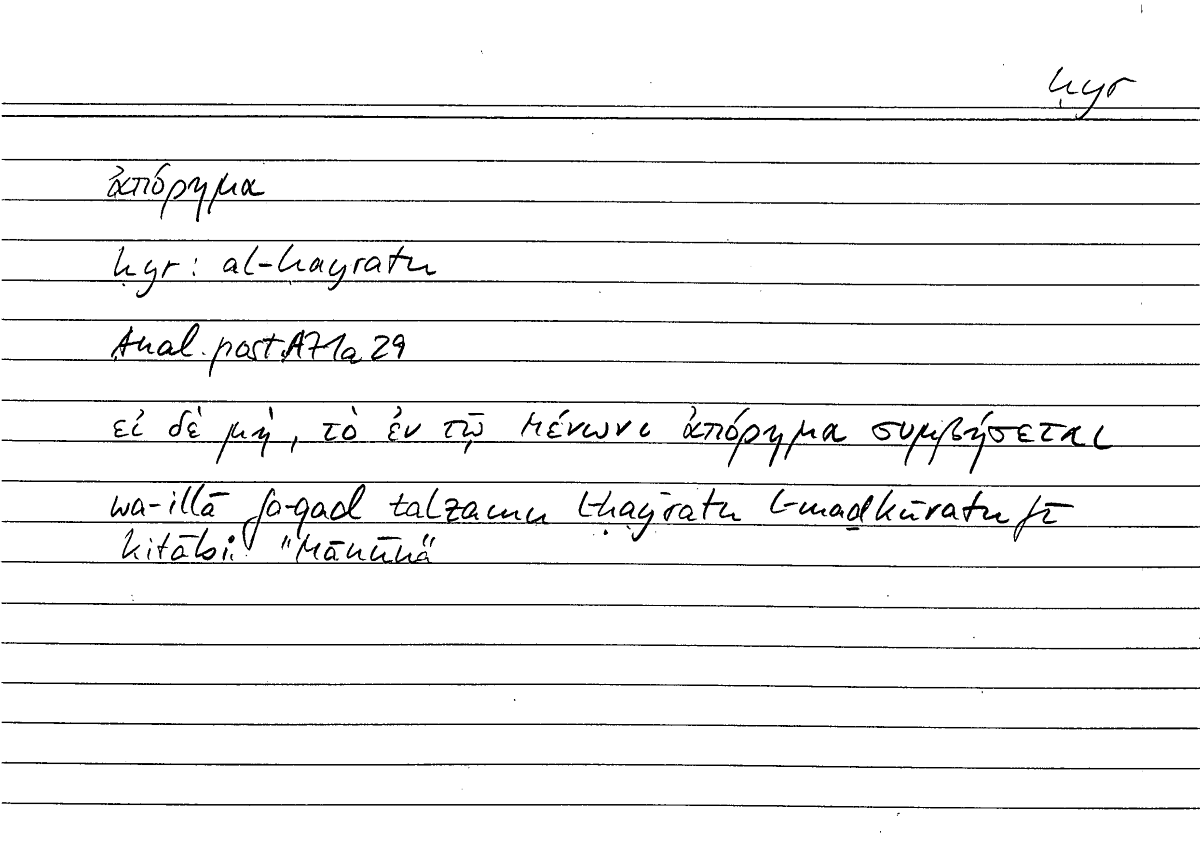 ḥyr
ἀπόρημα
ḥyr: al-ḥayratu
Anal. post. A71a 29
εἰ δὲ μή, τὸ ἐν τῷ Μένωνι ἀπόρημα συμβήσεται
wa-illā fa-qad talzamu l-ḥayratu l-maḏkūratu fī
kitābi: "Mānūnā"